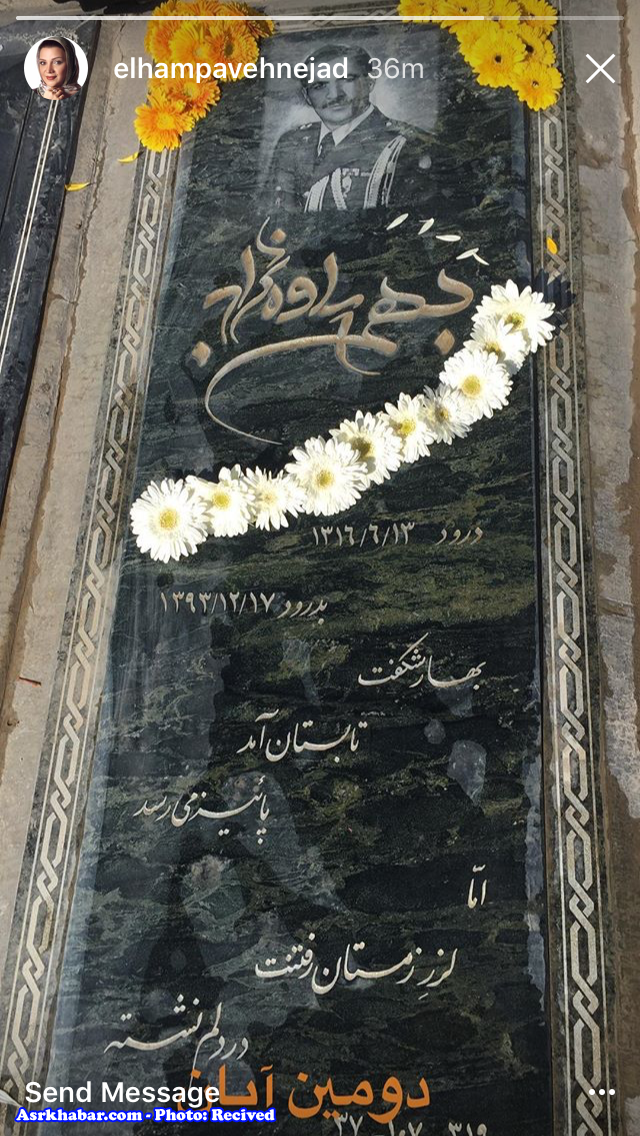 elhampavehnejad 36m
بهمن پاوه نژاد
درود ۱۳۱۶/۶/۱۳
بدرود ۱۳۹۳/۱۲/۱۷
بهار شکفت
تابستان آمد
پائیز می رسد
امّا
لرزِ زمستان رفتنت
در دلم نشسته
دومین آبان
Send Message
Asrkhabar.com - Photo: Recived